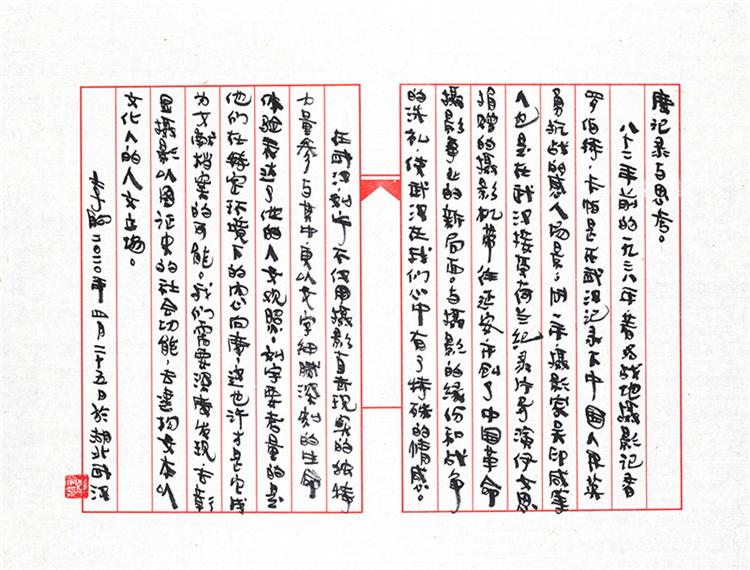 度记录与思考。
八十二年前的一九三八年著名战地摄影记者
罗伯特·卡帕是在武汉记录下中国人民英
勇抗战的感人场景，同一年摄影家吴印咸等
人也是在武汉接受荷兰纪录片导演伊文思
捐赠的摄影机带往延安开创了中国革命
摄影事业的新局面。与摄影的缘份和战争
的洗礼使武汉在我们心中有了特殊的情感。
在武汉，刘宇不仅用摄影直击现实的独特
力量参与其中，更以文字细腻深刻的生命
体验表达了他的人文观照。刘宇要考量的是
他们在特定环境下的内心向度，这也许才是它成
为文献档案的可能。我们需要深度发现去彰
显摄影以图证史的社会功能，去建构文本以
文化人的人文立场。
李 二〇二〇年四月二十五日于湖北武汉